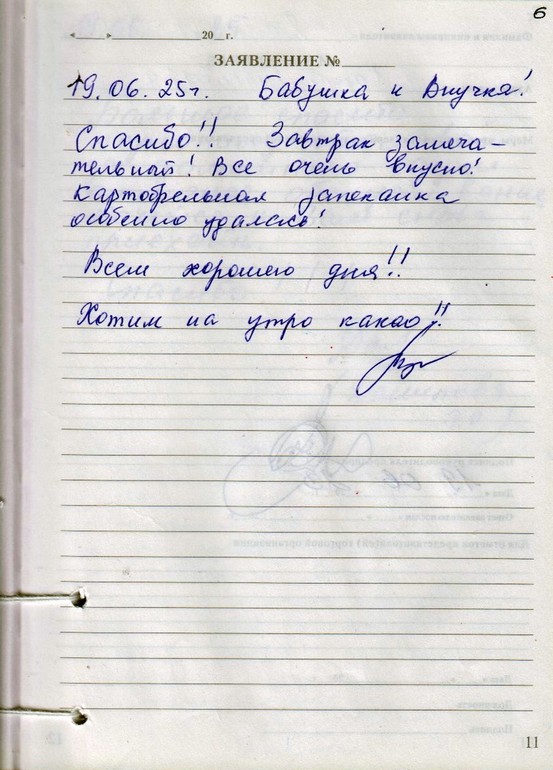 6
« » 20 г.
ЗАЯВЛЕНИЕ №
19.06.25г. Бабушка и Внучка!
Спасибо!! Завтрак замеча-
тельный! Все очень вкусно!
Картофельная запеканка
особенно удалась!
Всем хорошего дня!!
Хотим на утро какао!!
11